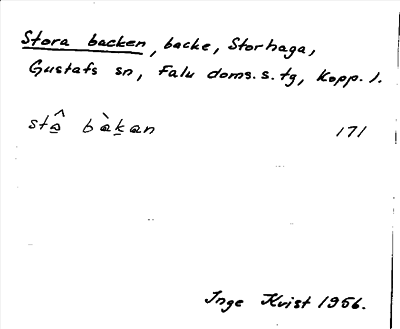 Stora backen, backe, Storhaga,
Gustafs sn, Falu doms.s.tg, Kopp. l.
stо̲̂ bɑ̀k̲an 171
Inge Kvist 1956.